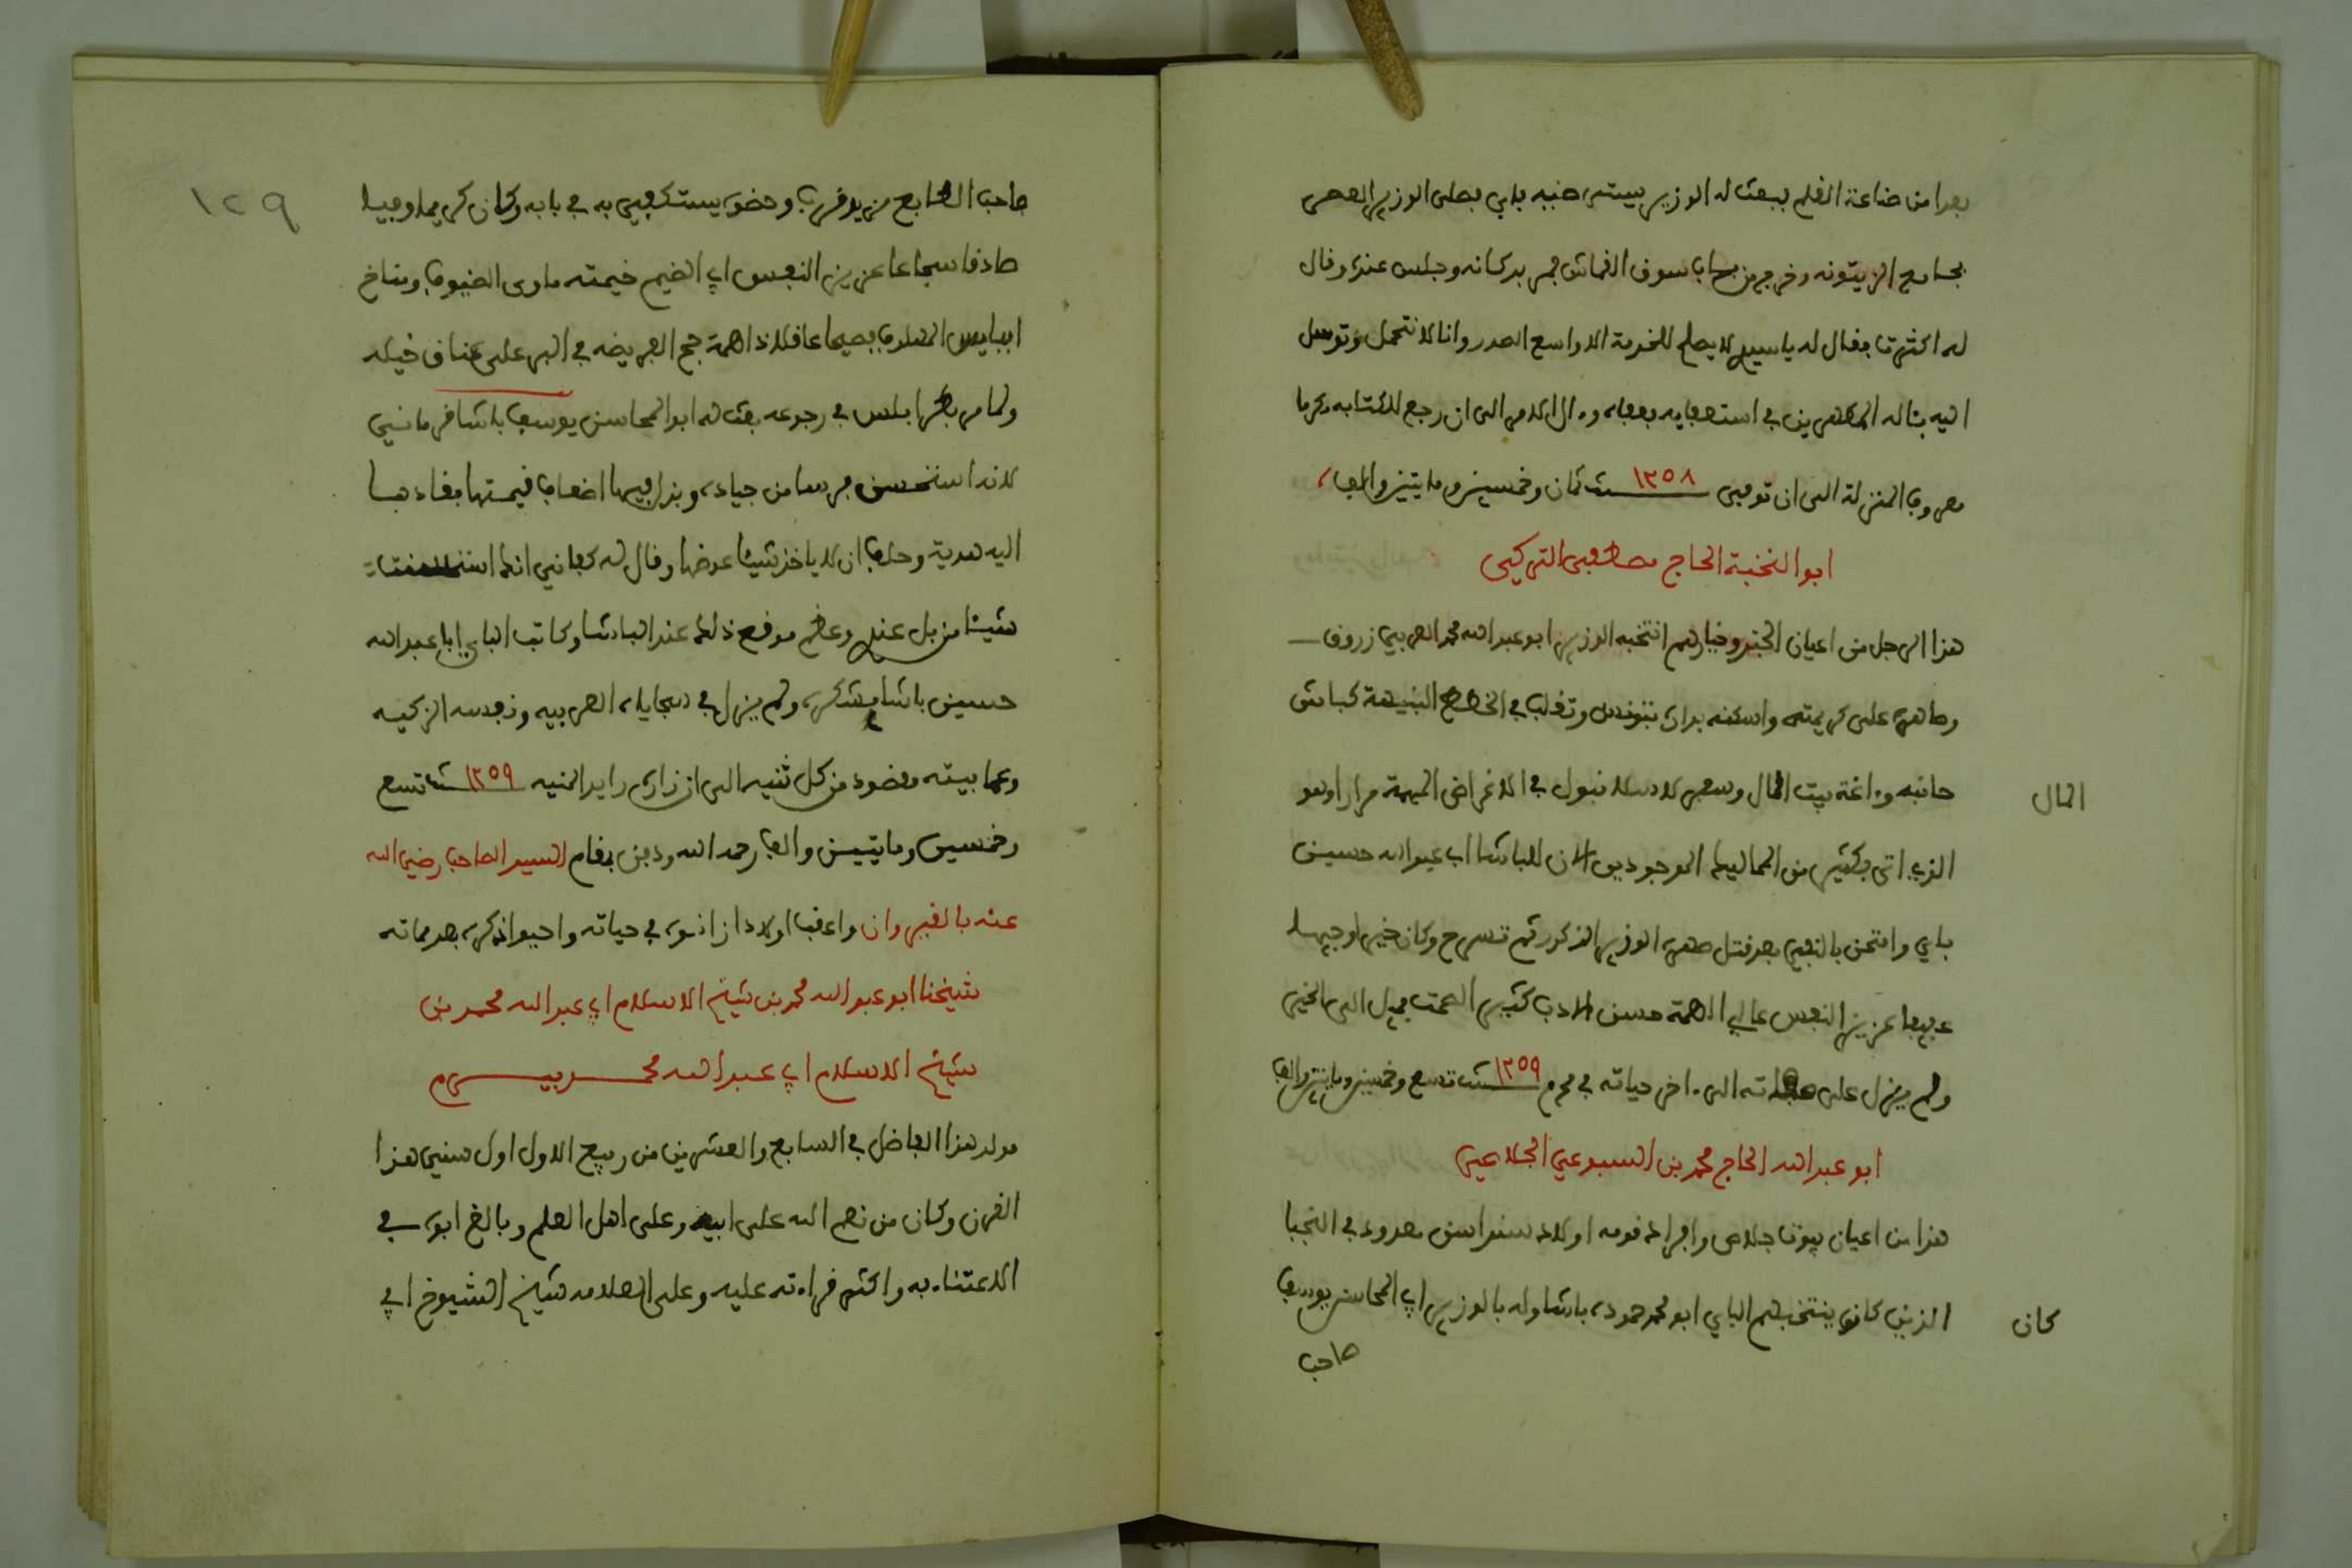 بعدا من صناعة القلم فبعث له الوزير يستر ضيه بابى فصلى الوزير العصر
بجامع الزيتونه وخرج من باب سوق القماش فمر بدكانه وجلس عنده وقال
له اكثرت فقال له ياسيدي لا يصلح للخدمة الا واسع الصدر وانا لا نتحمل وتوسل
اليه بثاله المكاسرين في استعفايه بعفاه وءال الامر الى ان رجع للكتابه مكرما
معروف المنزلة الى ان توفي سنة ١٢٥٨ ثمان وخمسين ومايتين والف
ابو النخبة الحاج مصطفى التركي
هذا الرجل من اعيان الجند وخيارهم انتخبه الوزير ابو عبد الله محمد العربي زروق
وصاهره على كريمته واسكنه بداره بتونس وتقلب في الخطط النبيهة كباش
حانبه وءاغة بيت المال وسفر لاسلانبول في الاغراض المهمة مرارا وهو
المال
الذي اتى بكثير من المماليك الموجودين الان للباشا ابي عبد الله حسين
باي وامتحن بالنفي بعد قتل صهره الوزير المذكور ثم تسرح وكان خيرا وجيها
عفيفا عزيز النفس عالي الهمة حسن الادب كثير الصمت يميل الى الخير
ولم يزل على حالته الى ءاخر حياته في محرم سنة ١٢٥٩ تسع وخمسين ومايتين والف
ابو عبد الله الحاج محمد بن السبوعي الجلاصي
هذا من اعيان بيوت جلاص وافراد قومه اولاد سنداسن معدود في النجبا
الذين كان ينتخبهم الباي ابو محمد حموده باشا وله بالوزير ابي المحاسن يوسف
كان
صاحب
١٢٩
صاحب الطابع مزيد قرب وحضوه يستكفي به في بابه وكان كريما وجيها
صادقا شجاعا عزيز النفس ابي الضيم خيمته ماوى الضيوف ومناخ
اببايس الملهوف فصيحا عاقلا ذا همة حج الفريضه في البر على عتاق خيله
ولما مر بطرابلس في رجوعه بعث له ابو المحاسن يوسف باشا قرمانلي
لانه استحسن فرسا من جياده وبذل فيها اضعاف قيمتها فقادها
اليه هدية وحلف ان لا ياخذ شيئا عوضها وقال له كفاني انك استحسنت
شيئا من بل عندي وعظم موقع ذلك عند الباشا وكاتب الباي ابا عبد الله
حسين باشا بشكره ولم يزل في سجاياه العربيه ونفسه الزكيه
وعما بيته مقصود من كل ثنيه الى ان زاره رايد المنيه سنة ١٢٥٩ تسع
وخمسين ومايتين والف رحمه الله ودفن بمقام السيد الصاحب رضي الله
عنه بالقيروان واعقب اولادا زانوه في حياته واحيوا ذكره بعد مماته
شيخنا ابو عبد الله محمد بن شيخ الاسلام ابي عبد الله محمد بن
شيخ الاسلام ابي عبد الله محمد بيرم
مولد هذا الفاضل في السابع والعشرين من ربيع الاول اول سني هذا
القرن وكان من نعم الله على ابيه وعلى اهل العلم وبالغ ابوه في
الاعتناء به واكثر قراءته عليه وعلى العلامه شيخ الشيوخ ابي